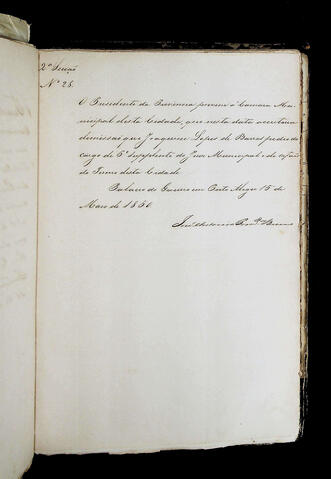 2ª Secção
Nº 25.
O Presidente da Provincia previne á Camara Mu-
nicipal desta Cidade, que nesta data acceitou a
demissão que Joaquim Lopes de Barros pedio do
cargo de 5º Supplente do Juiz Municipal e de Orfãos
do Termo desta Cidade.
Palacio do Governo em Porto Alegre 15 de
Maio de 1860.